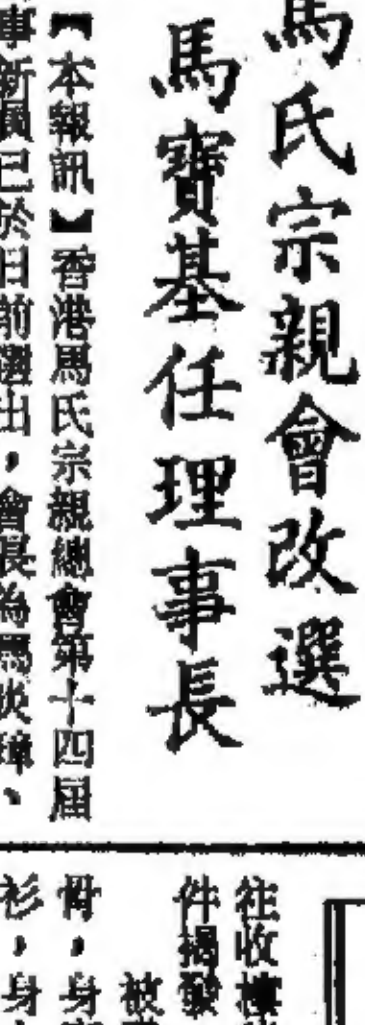 馬氏宗親會改選
馬寶基任理事長
【本報訊】香港馬氏宗親總會第十四屆
事新職已於日前選出，會長為馬
往收樓
件揭發
被
骨，身
衫，身